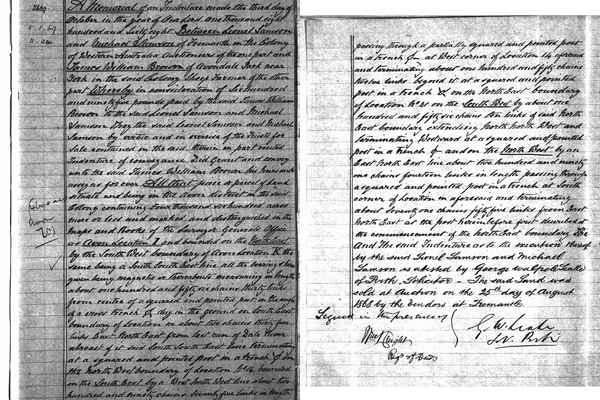 2689
5.1.69
11 a.m.
A Memorial of an Indenture made the third day of
October in the year of our Lord one thousand eight
hundred and sixty eight Between Lionel Samson
and Michael Samson of Fremantle in the Colony
of Western Australia Auctioneers of the one part and
James William Brown of Avondale Park near
York in the said Colony Sheep Farmer of the other
part Whereby in consideration of Six hundred
and ninety five pounds paid by the said James William
Brown to the said Lionel Samson and Michael
Samson They the said Lionel Samson and Michael
Samson by virtue and in exercise of the Trusts for
Sale contained in the said therein in part recited
Indenture of conveyance Did Grant and convey
unto the said James William Brown his heirs and
assigns for ever All that piece or parcel of land
situate and being in the Avon district in the said
Colony containing Four thousand six hundred acres
more or less and marked and distinguished in the
maps and Books of the Surveyor Generals Office
as Avon Location and bounded on the North East
by the South West boundary of Avon Location K the
same being a South South East line
given being magnetic or thereabouts measuring in length
about one hundred and fifty six chains thirty links
from centre of a squared and pointed post in the angle
of a cross trench & dug in the ground on South East
boundary of Location about two chains thirty five
links East North East from left run of Dale River
abreast of it said South South East line terminating
at a squared and pointed post in a trench & on
the North West boundary of Location No 14 bounded
on the South East by a West South West line about two
hundred and ninety chains seventy five links in length
passing through a partially squared and pointed post
in a trench & at West corner of Location
and terminating about one hundred and fifty chains
twelve links beyond it at a squared and pointed
post in a trench & on the North East boundary
of Location No 21 on the South West by about one
hundred and fifty six chains ten links of said North
East boundary extending North North West and
terminating Westward at a squared and pointed
post in a trench & and on the North West by an
East North East line about two hundred and ninety
one chains fourteen links in length passing through
a squared and pointed post in a trench at South
corner of Location aforesaid and terminating
about seventy one chains fifty five links from East
North East at the post hereinbefore first described at
the commencement of the North East boundary
And the said Indenture as to the execution thereof
by the said Lionel Samson and Michael
Samson is attested by George Walpole Leake
of Perth Solicitor. The said Land was
sold at Auction on the 25th day of August
1868 by the Vendors at Fremantle
Signed in the presence of
G. W. Leake
Wm Knight
Regr of Deeds